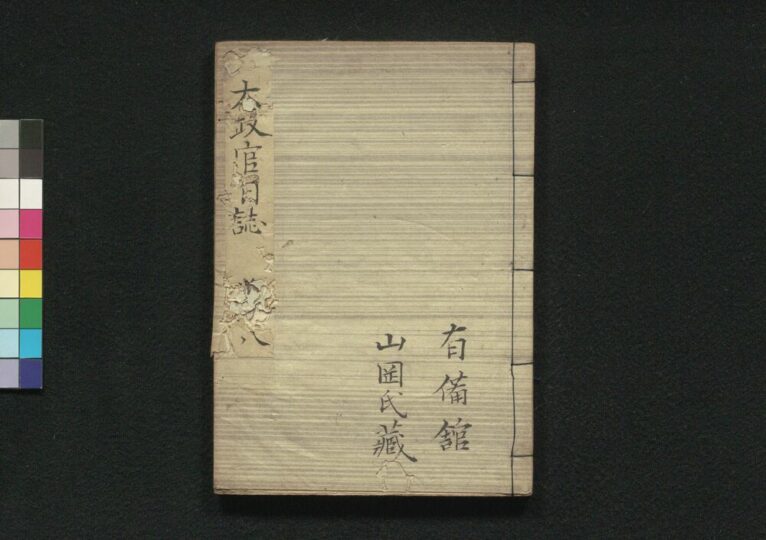 有備館
山岡氏藏
太政官日誌
八